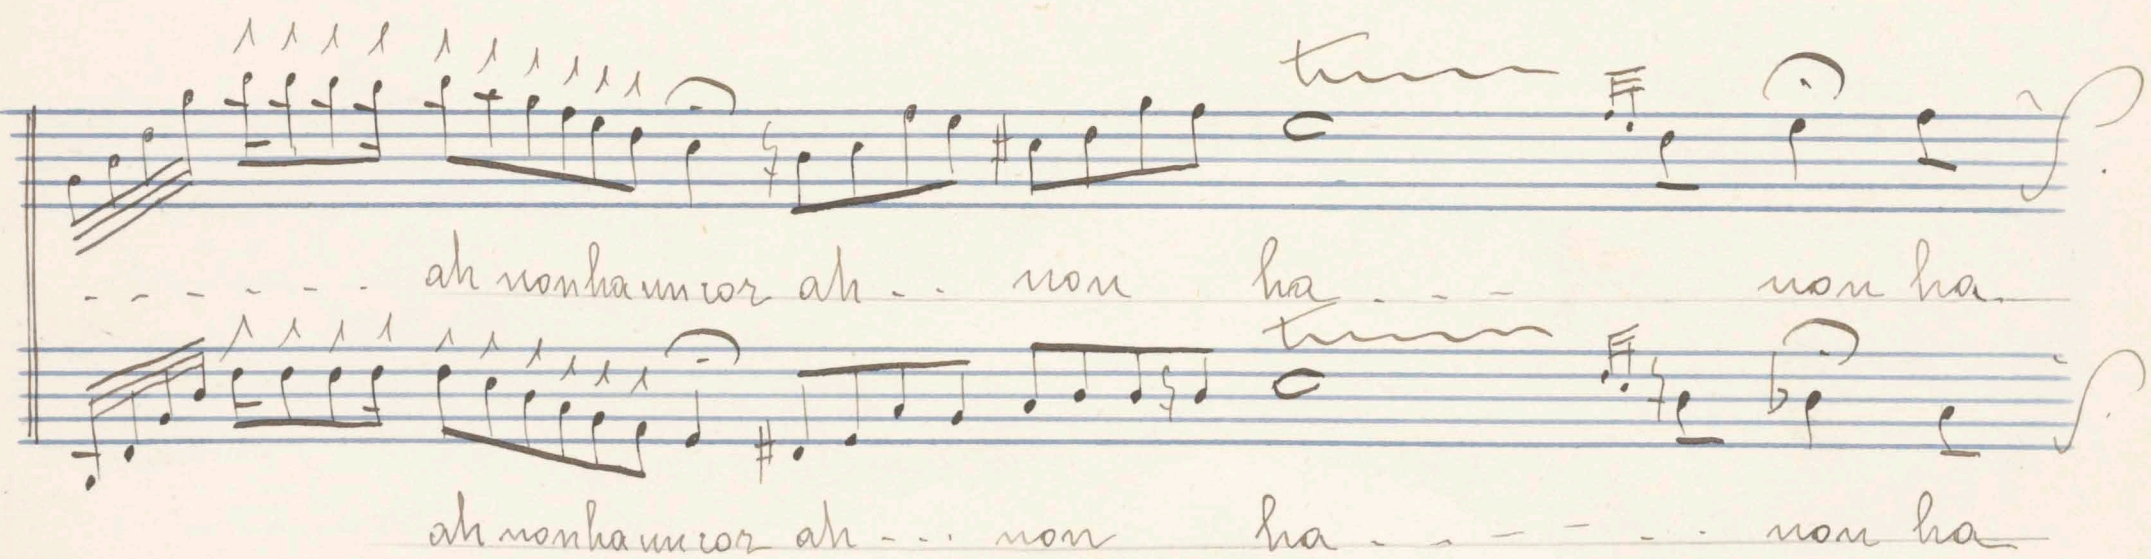 tr
- - - - - - ah non ha un cor ah - - non ha - - - non ha
tr
ah non ha un cor ah - - - non ha - - - - - - non ha